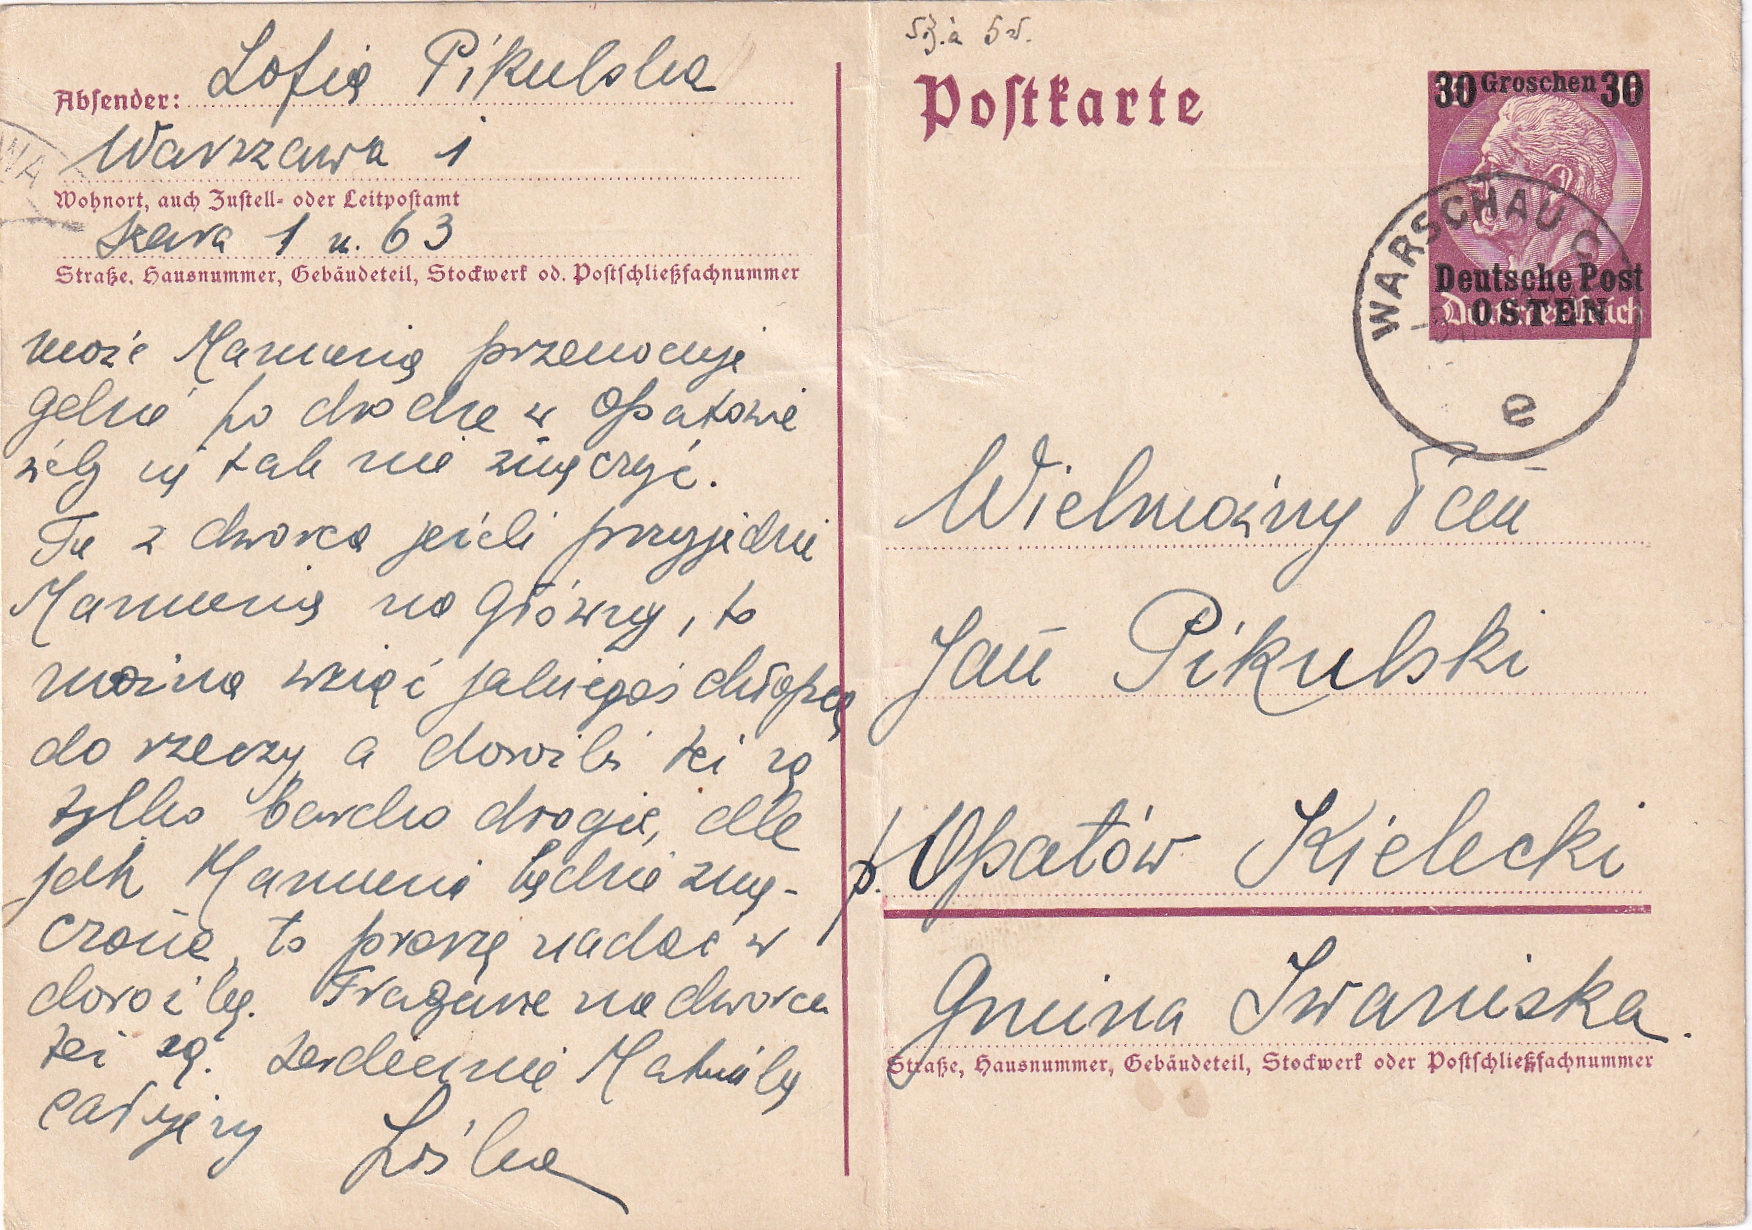 Absender: Zofia Pikulska
Warszawa 1
Wohnort, auch Zustell- oder Leitpostamt
Szara 1 m. 63
Straße, Hausnummer, Gebäudeteil, Stockwerk od. Postschließfachnummer
może Mamusia przenocuje
gdzie po drodze w Opatowie
żeby się tak nie zmęczyć.
Tu z dworca jeśli przyjedzie
Mamusia na Główny, to
można wziąć jakiegoś chłopca
do rzeczy a dorożki też są
tylko bardzo drogie, ale
jak Mamusia będzie zmę-
czona, to proszę wsiąść w
dorożkę. Tragarze na dworcu
też są. Serdecznie Matulę
całujemy
Zośka
Postkarte
30 Groschen 30
Deutsche Post
OSTEN
Deutsches Reich
WARSCHAU C
e
Wielmożny Pan
Jan Pikulski
p. Opatów Kielecki
Gmina Iwaniska.
Straße, Hausnummer, Gebäudeteil, Stockwerk oder Postschließfachnummer
WA